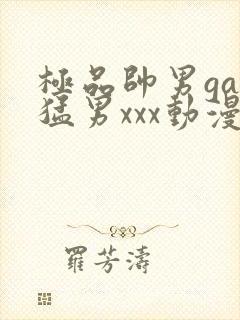 極品帥男ga
猛男xxx動漫
羅芳濤